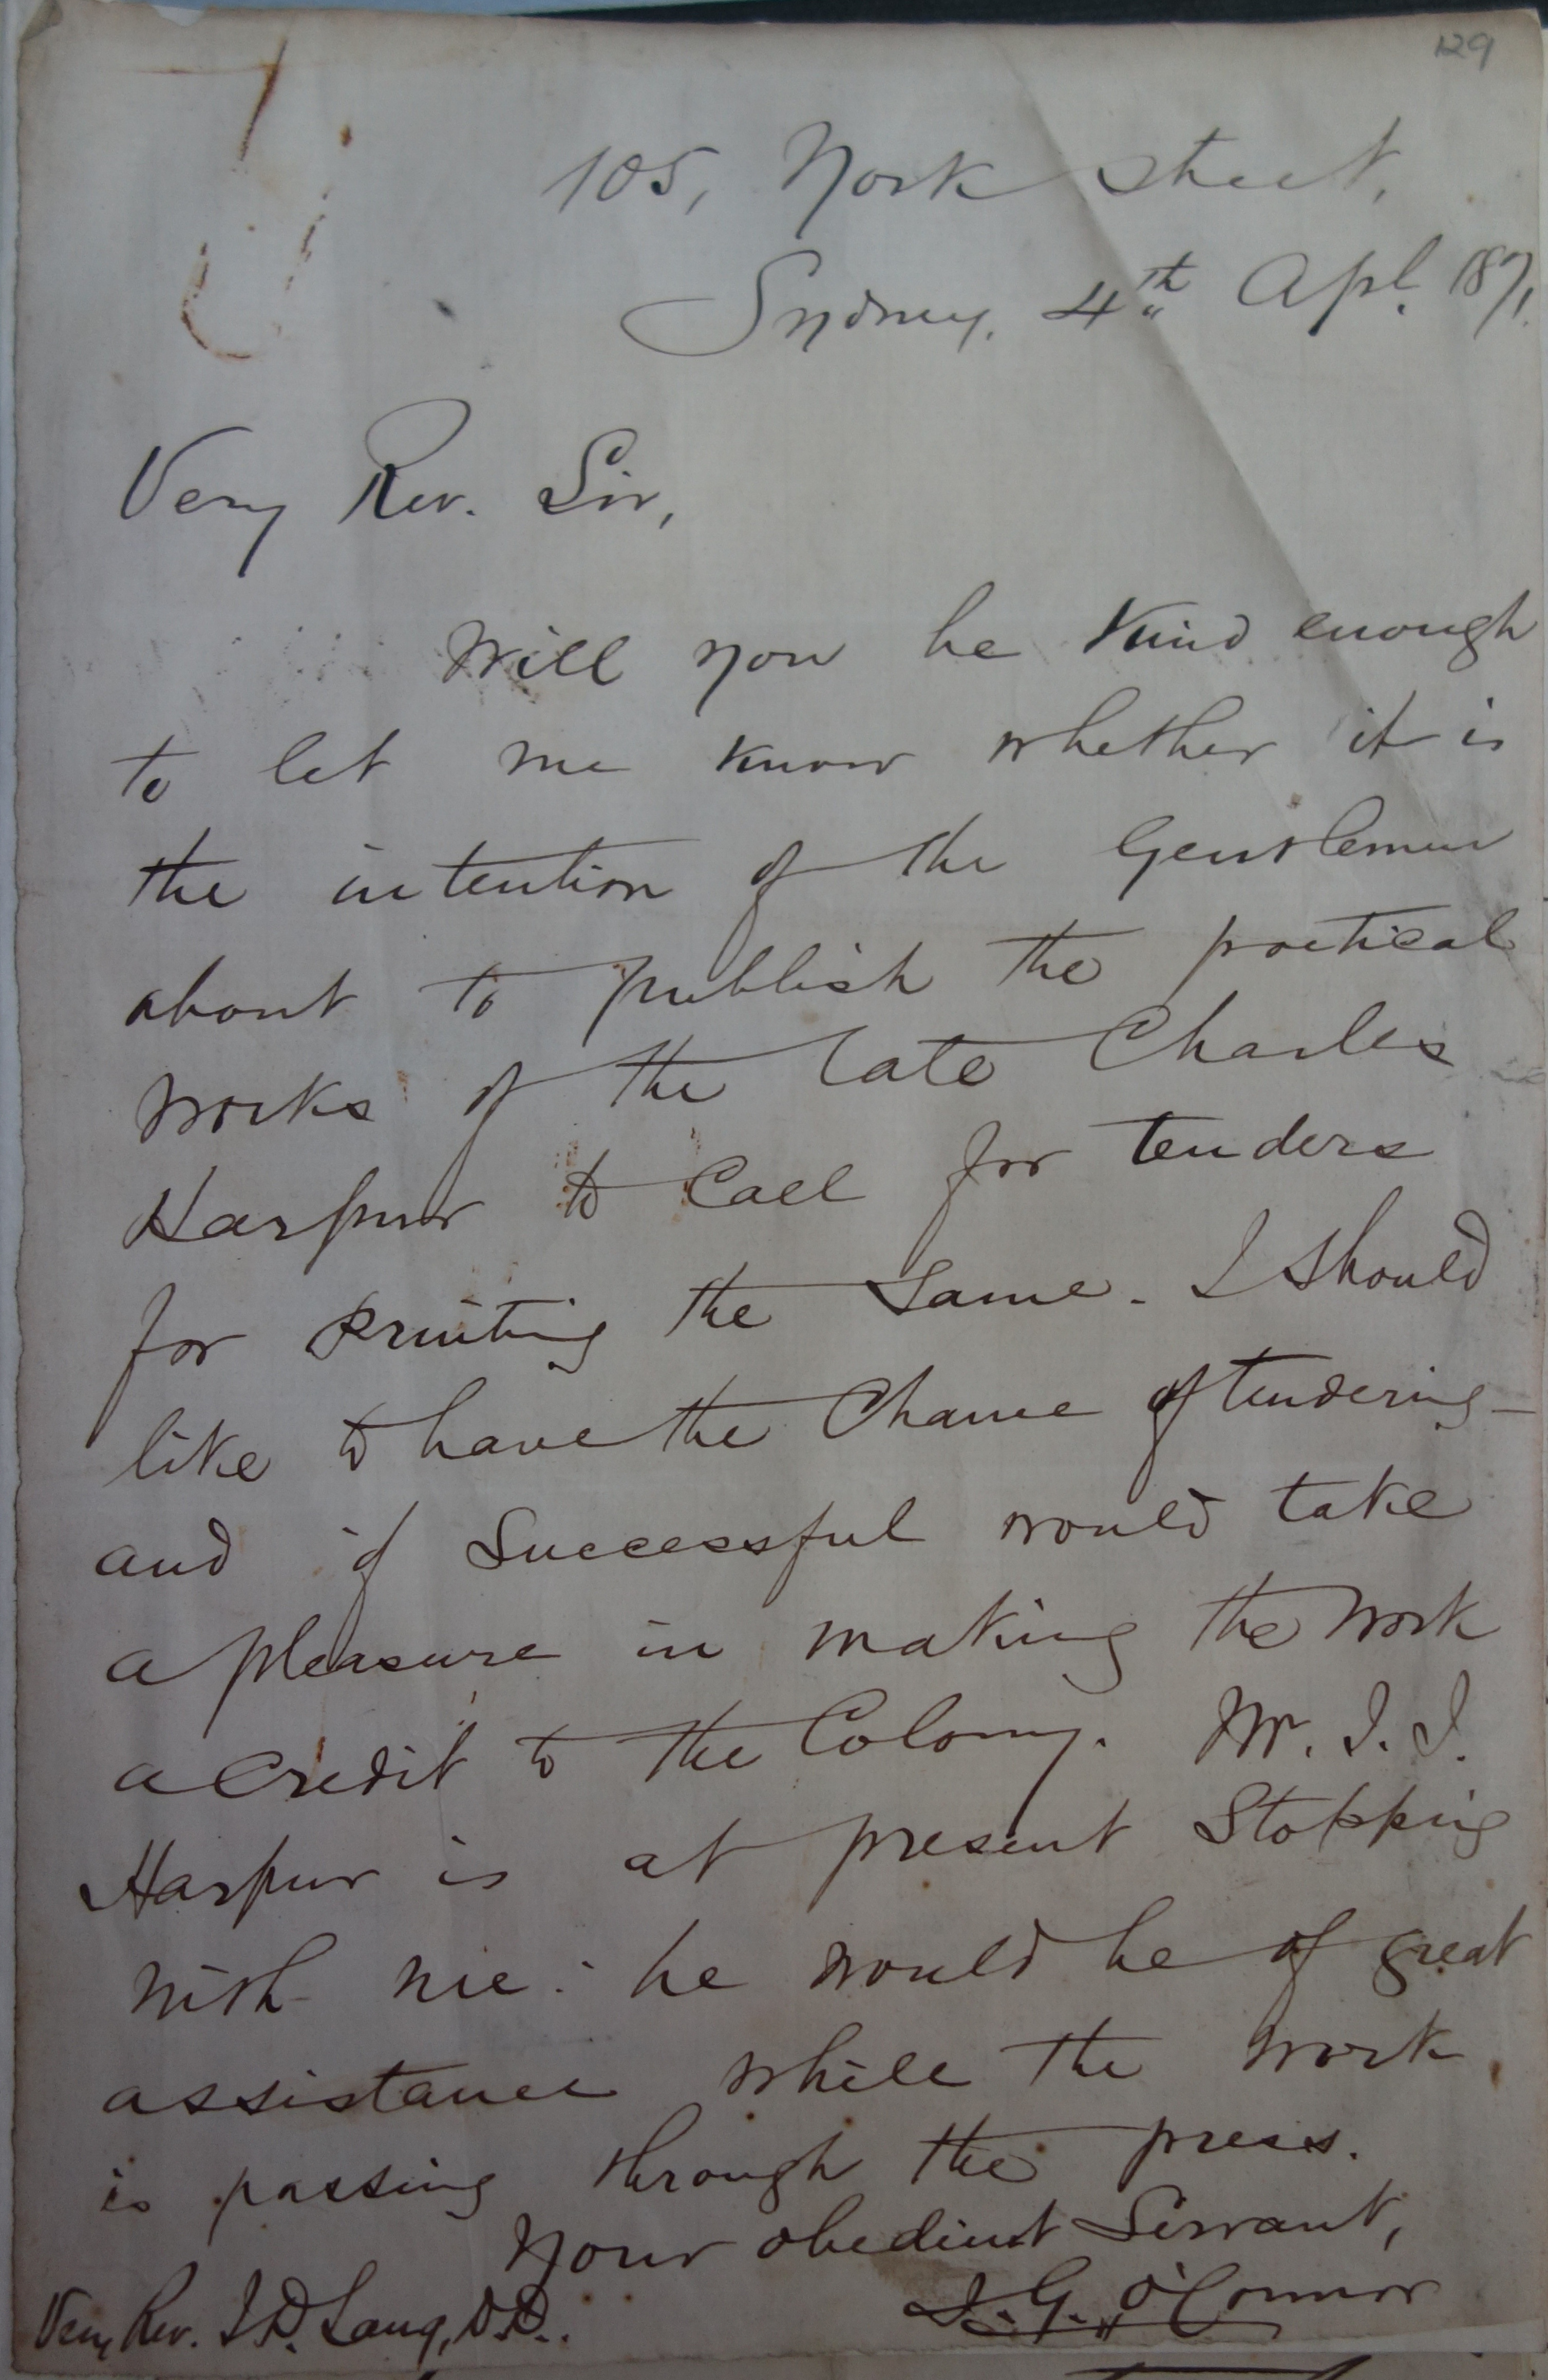 129
105, York Street,
Sydney, 4th Apl. 1871.
Very Rev. Sir,
Will you be kind enough
to let me know whether it is
the intention of the Gentlemen
about to publish the poetical
works of the late Charles
Harpur to call for tenders
for printing the same. I should
like to have the chance of tendering—
and if successful would take
a pleasure in making the work
a credit to the Colony. Mr. J. J.
Harpur is at present stopping
with me: he would be of great
assistance while the work
is passing through the press.
Your obedient Servant,
J. G. O'Connor
Very Rev. J. D. Lang, D.D..